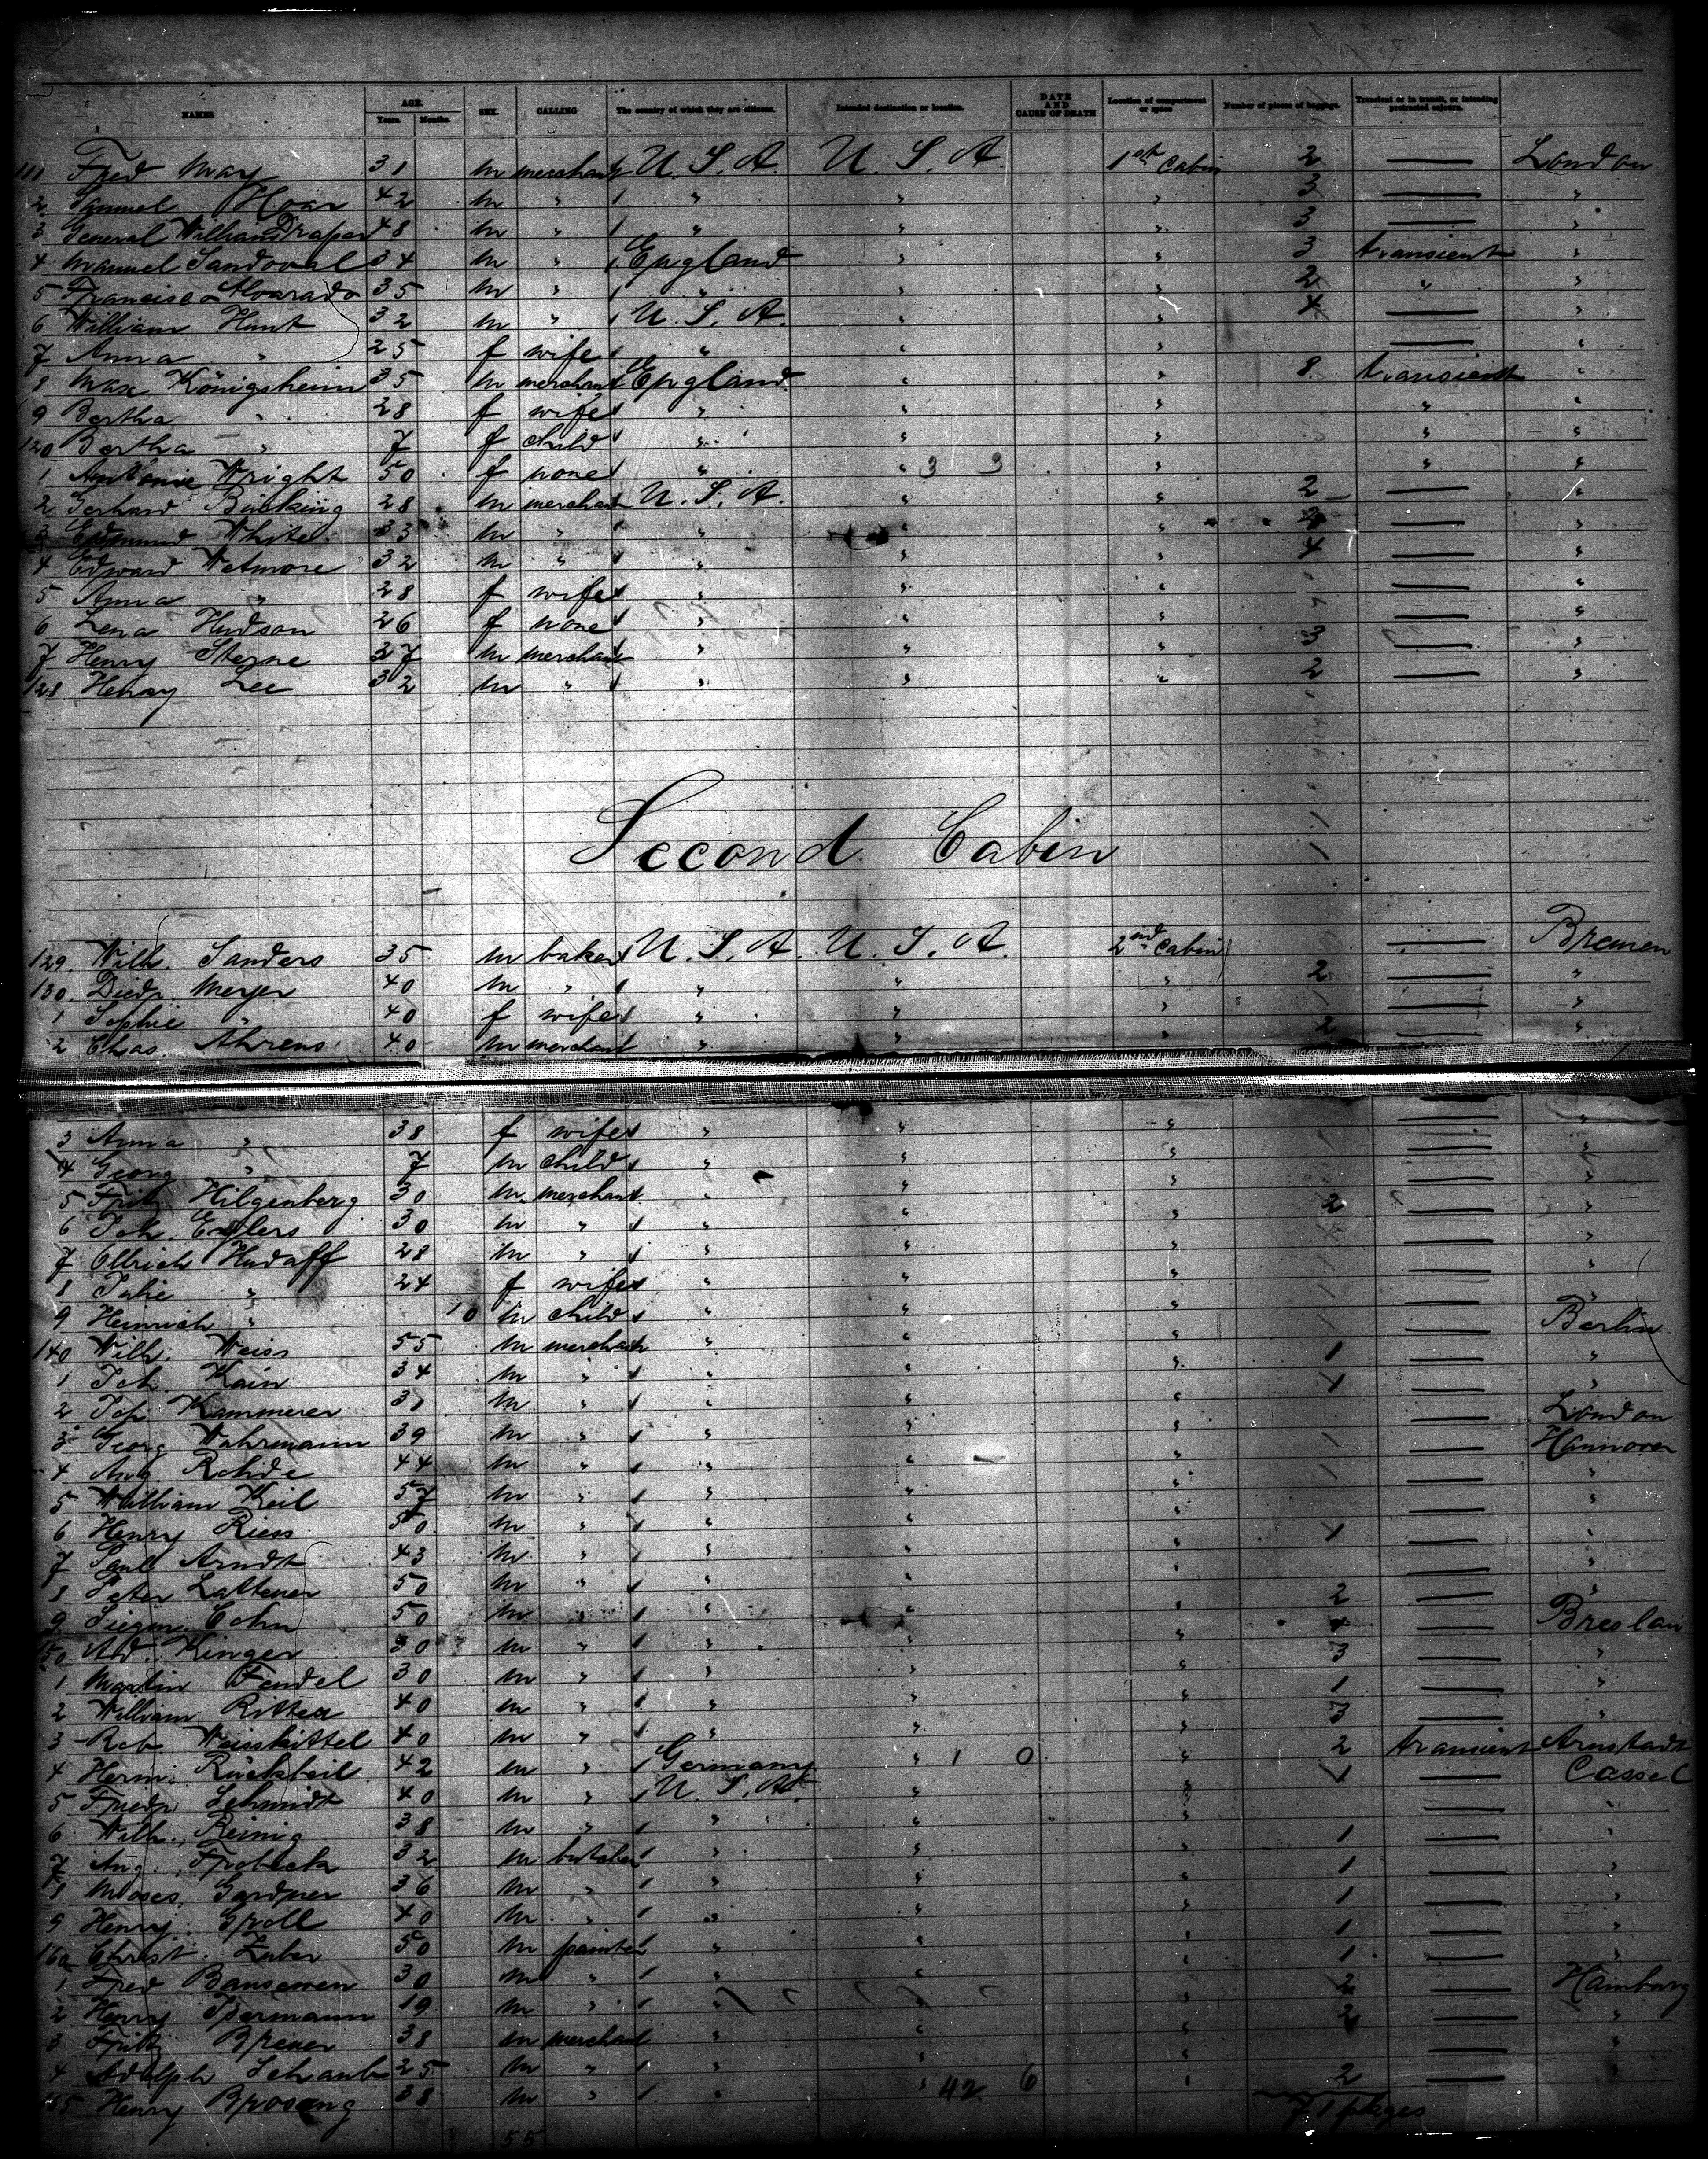 NAMES AGE. Years. Months. SEX. CALLING The country of which they are citizens. Intended destination or location. DATE AND CAUSE OF DEATH Location of compartment or space Number of pieces of baggage. Transient or in transit, or intending protracted sojourn.
111 Fred May 31 m merchant U. S. A. U. S. A. 1st Cabin 2 — London
2 Samuel Hoar 42 m " " " " 3 — "
3 General William Draper 48 m " " " " 3 — "
4 Manuel Sandoval 34 m " England " " 3 transient "
5 Francisco Alvarado 35 m " " " " 2 " "
6 William Hunt 32 m " U. S. A. " " 4 — "
7 Anna " 25 f wife " " " — "
8 Max Königsheim 35 m merchant England " " 8 transient "
9 Bertha " 28 f wife " " " " "
120 Bertha " 7 f child " " " " "
1 Antonie Wright 50 f none " " 3 3 " " "
2 Gerhard Bücking 28 m merchant U. S. A. " " 2 — "
3 Edmund White 33 m " " " " — "
4 Edward Wetmore 32 m " " " " 4 — "
5 Anna " 28 f wife " " " — "
6 Lena Hudson 26 f none " " " — "
7 Henry Sterne 37 m merchant " " " 3 — "
128 Henry Lee 32 m " " " " 2 — "
Second Cabin
129. Wilh. Sanders 35 m baker U. S. A. U. S. A. 2nd Cabin — Bremen
130. Diedr. Meyer 40 m " " " " 2 — "
1 Sophie " 40 f wife " " " — "
2 Chas. Ahrens 40 m merchant " " " 2 — "
3 Anna " 38 f wife " " " — "
4 Georg " 7 m child " " " — "
5 Fritz Hilgenberg 30 m merchant " " " — "
6 Joh. Ehlers 30 m " " " " 2 — "
7 Ollrich Hudaff 28 m " " " " — "
8 Julie " 24 f wife " " " — "
9 Heinrich " 10 m child " " " — "
140 Wilh. Weiss 55 m merchant " " " — Berlin
1 Joh. Kain 34 m " " " " 1 — "
2 Jos Kammerer 3 m " " " " 1 — "
3 Georg Wahrmann 39 m " " " " — London
4 Aug. Rohde 44 m " " " " — Hannover
5 William Keil 57 m " " " " — "
6 Henry Riess 50 m " " " " — "
7 Paul Arndt 43 m " " " " 1 — "
8 Peter Lattener 50 m " " " " — "
9 Siegm. Cohn 50 m " " " " 2 — "
150 Ad. Kinger 30 m " " " " — Breslau
1 Martin Fendel 30 m " " " " 3 — "
2 William Ritter 40 m " " " " 1 — "
3 Rob. Weisskittel 40 m " " " " 3 — "
4 Herm. Rückbeil 42 m " Germany " 1 0 " 2 transient Arnstadt
5 Friedr. Schmidt 40 m " U. S. A. " " 1 — Cassel
6 Wilh. Reinig 38 m " " " " — "
7 Aug. Frobeck 32 m butcher " " " 1 — "
8 Moses Gardner 36 m " " " " 1 — "
9 Henry Groll 40 m " " " " 1 — "
160 Christ. Zuber 50 m painter " " " 1 — "
1 Fred 30 m " " " " 1 — "
2 Henry 19 m " " " " 2 — Hamburg
3 Fritz Breuer 38 m merchant " " " 2 — "
4 Adolph Schaub 25 m " " " " — "
165 Henry 38 m " " " 42 6 " 2 — "
55 71 pkges